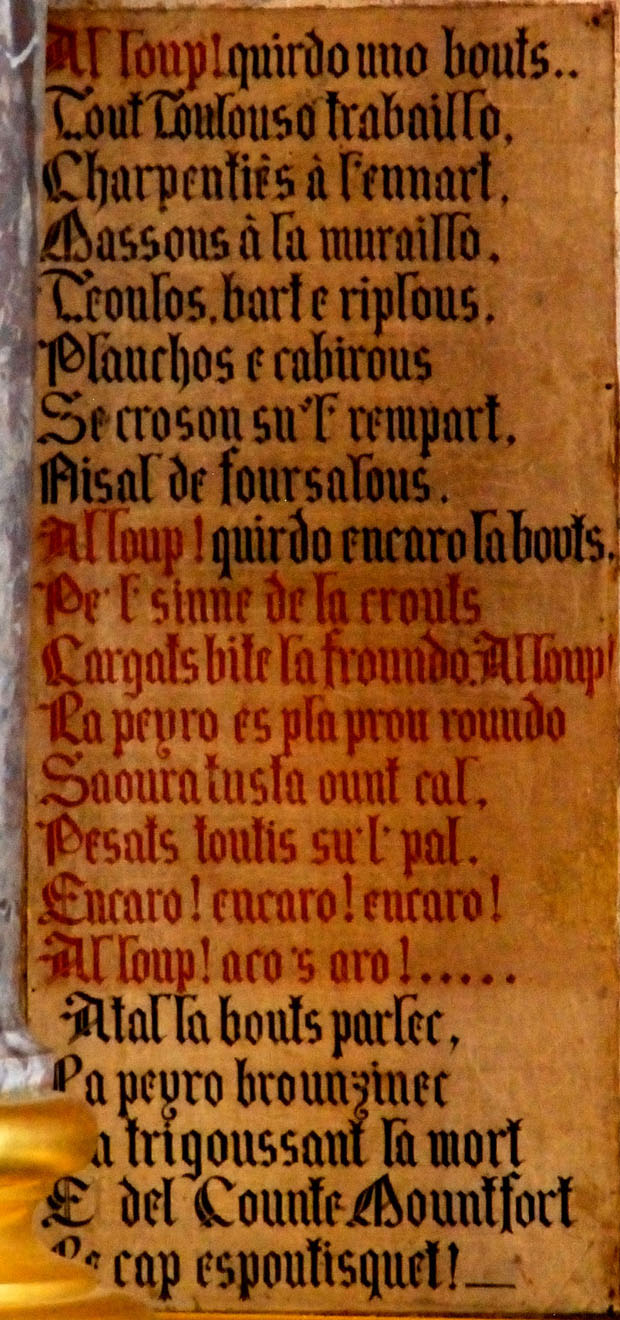 Al loup! quirdo uno bouts..
Tout Toulouso trabaillo,
Charpentiés à l'ennart,
Massous à la muraillo,
Teoulos, bart e riplous,
Planchos e cabirous
Se croson su'l rempart,
Aisal de foursalous.
Al loup! quirdo encaro la bouts,
Pe'l sinne de la crouts
Cargats bite la froundo. Al loup!
La peyro es pla prou roundo
Saoura tusta ount cal,
Pesats toutis su'l pal.
Encaro! encaro! encaro!
Al loup! aco's aro!.....
Atal la bouts parlec,
La peyro brounzinec
trigoussant la mort
E del Counte Mountfort
cap espoutisquet!